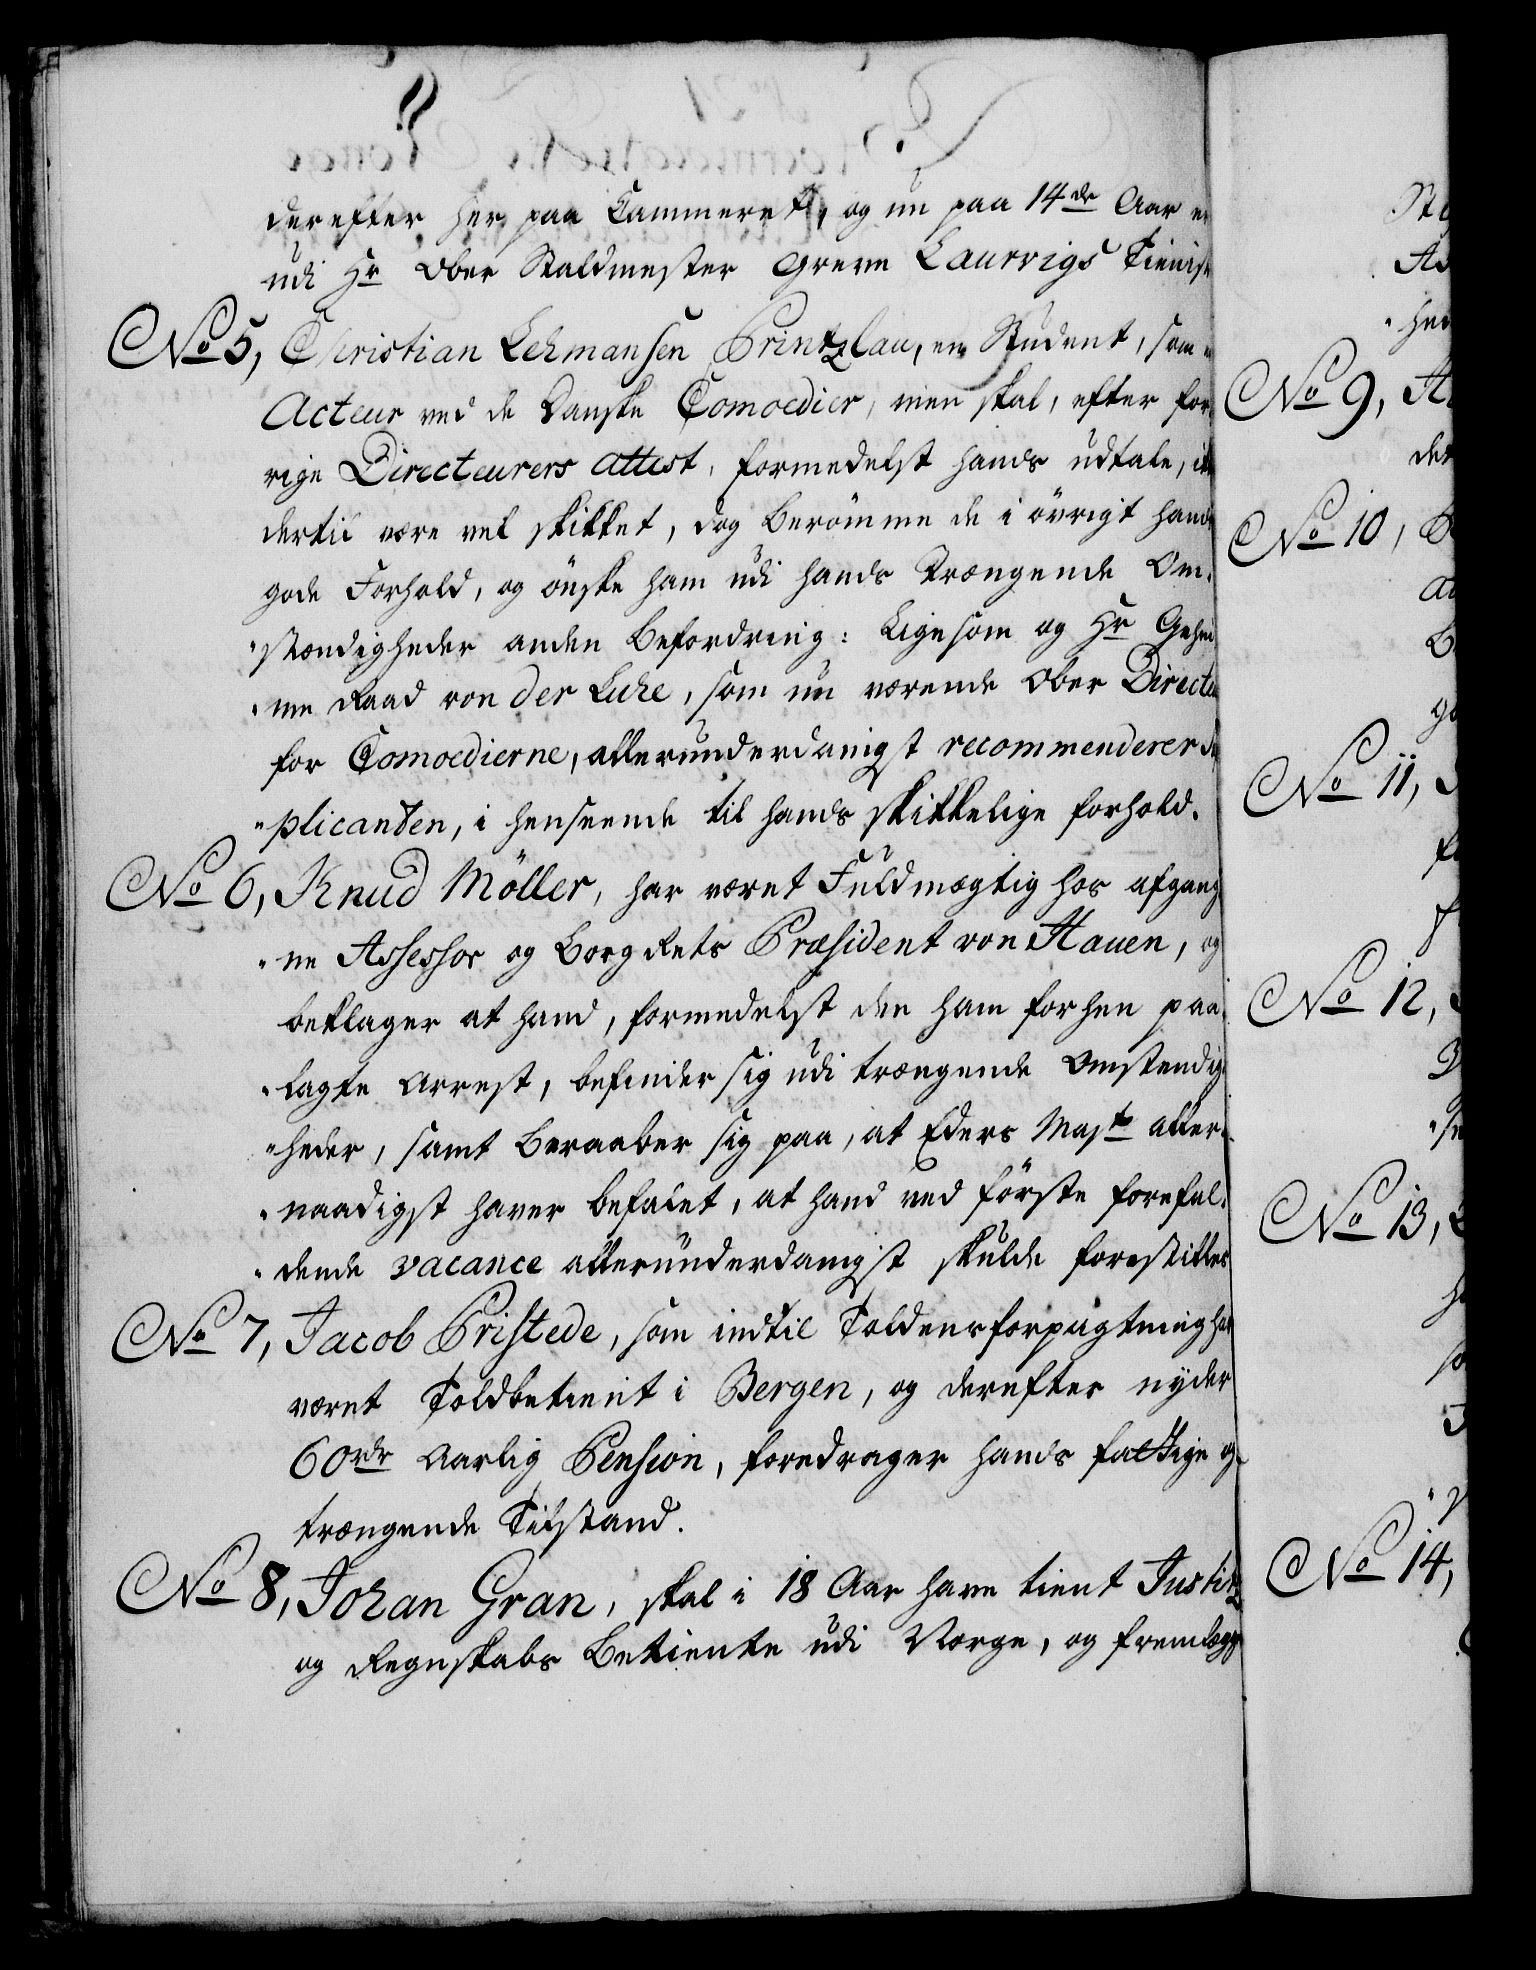 derefter her paa Cammeret, og nu paa 14de Aar
udi Hr Ober Staldmester Greve Laurvigs Tieniste
No 5, Christian Lehmansen Printzlau, en Student, som
Acteur ved de Danske Comoedier, men skal, efter for-
rige Directeurers attest, formedelst hands udtale, ik
dertil være vel skikket, dog berömme de i övrigt hands
gode Forhold, og önske ham udi hands Trængende Om-
stændigheder anden Befordring: Ligesom og Hr Gehei
me Raad von der Luhe, som nu værende Ober Directeu
for Comoedierne, allerunderdanigst recommenderer Su
plicanten, i henseende til hands skikkelige forhold.
No 6, Knud Möller, har været Fuldmægtig hos afgang
ne Assessor og Borg Rets Præsident von Haven, og
beklager at hand, formedelst den ham forhen paa
lagte Arrest, befinder sig udi trængende Omstændig
heder, samt beraaber sig paa, at Eders Mayt aller
naadigst haver befalet, at hand ved förste forefal
dende vacance allerunderdanigst skulde forestilles
No 7, Jacob Pristede, som indtil Toldens forpagtning har
været Toldbetient i Bergen, og derefter nyder
60 rdr Aarlig Pension, foredrager hands fattige og
trængende Tilstand.
No 8, Johan Gran, skal i 18 Aar have tient Justitz
og Regnskabs Betiente udi Norge, og fremlægg
No 9,
det
No 10,
No 11,
No 12,
No 13,
No 14,